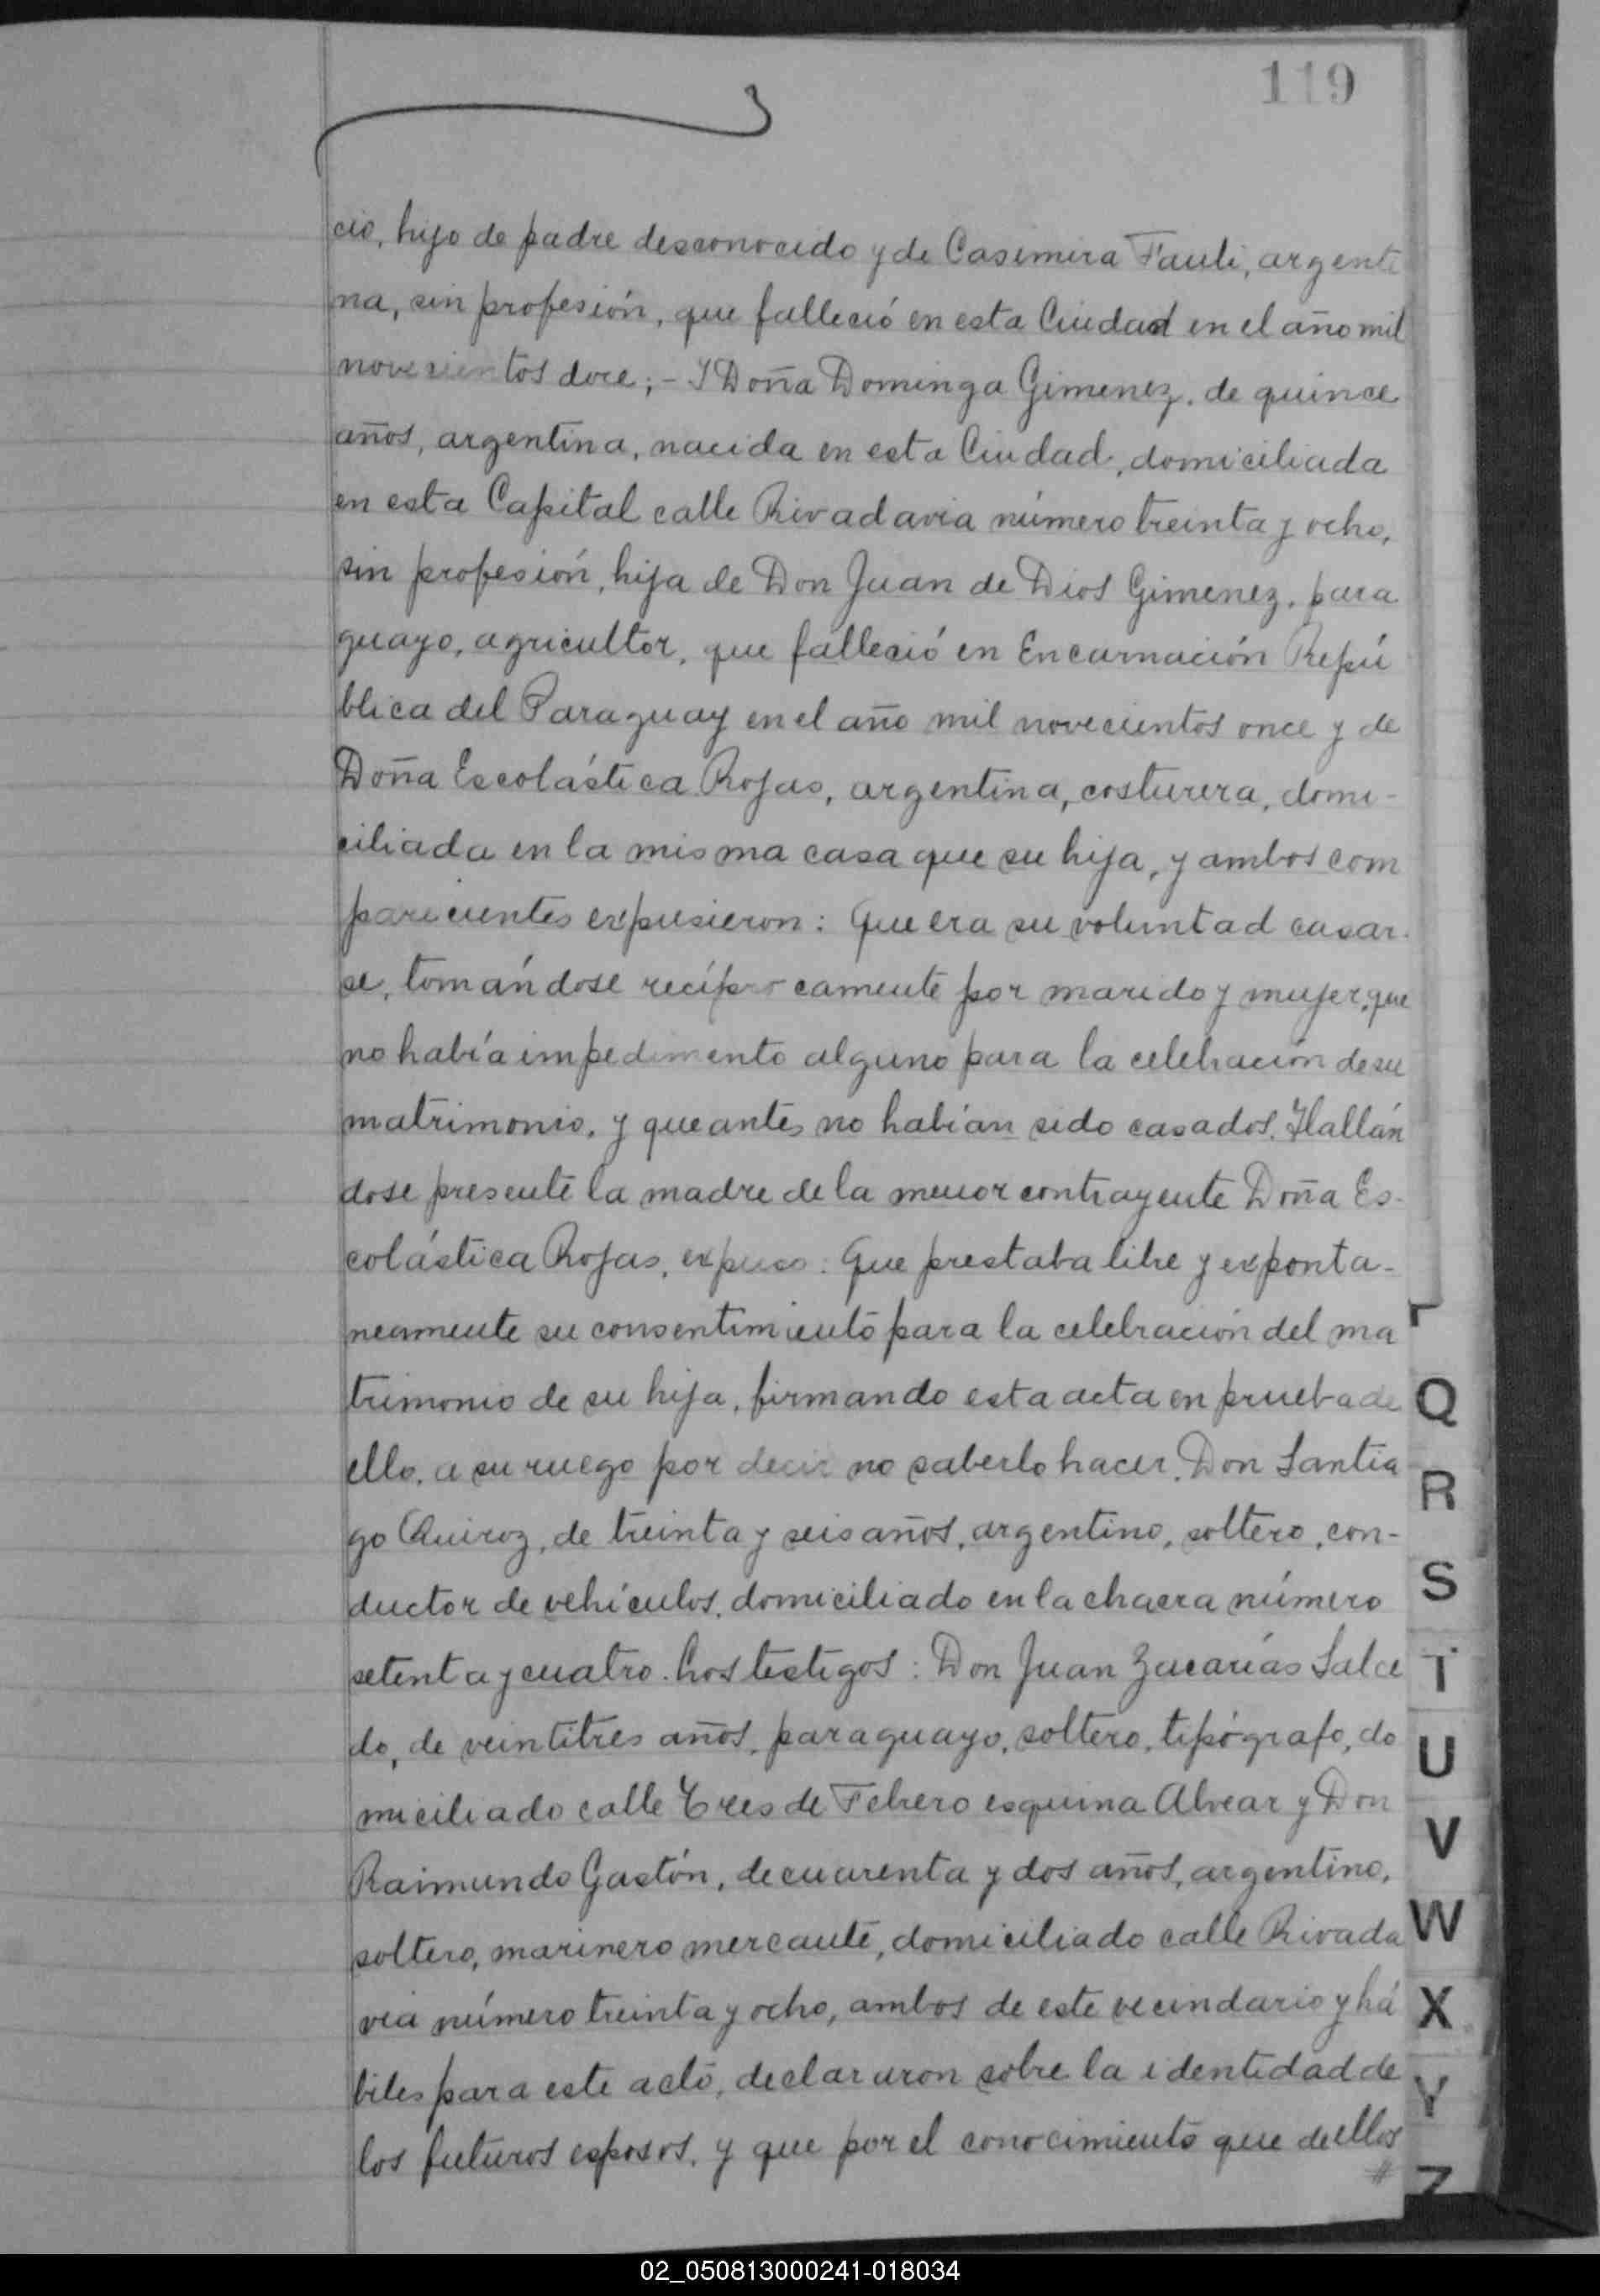 119
cio, hijo de padre desconocido y de Casimira Fauli, argenti
na, sin profesión, que falleció en esta Ciudad en el año mil
novecientos doce; - Y Doña Dominga Gimenez, de quince
años, argentina, nacida en esta Ciudad, domiciliada
en esta Capital calle Rivadavia número treinta y ocho,
sin profesión, hija de Don Juan de Dios Gimenez, para
guayo, agricultor, que falleció en Encarnación Repú
blica del Paraguay en el año mil novecientos once y de
Doña Escolástica Rojas, argentina, costurera, domi-
ciliada en la misma casa que su hija, y ambos com
parecientes expusieron: Que era su voluntad casar-
se, tomándose recíprocamente por marido y mujer, que
no había impedimento alguno para la celebración de su
matrimonio, y que antes no habían sido casados. Hallán
dose presente la madre de la menor contrayente Doña Es-
colástica Rojas, expuso: Que prestaba libre y exponta-
neamente su consentimiento para la celebración del ma
trimonio de su hija, firmando esta acta en prueba de
ello, a su ruego por decir no saberlo hacer, Don Santia
go Quiroz, de treinta y seis años, argentino, soltero, con-
ductor de vehículos, domiciliado en la chacra número
setenta y cuatro. Los testigos: Don Juan Zacarías Salce
do, de veintitres años, paraguayo, soltero, tipógrafo, do
miciliado calle Tres de Febrero esquina Alvear y Don
Raimundo Gastón, de cuarenta y dos años, argentino,
soltero, marinero mercante, domiciliado calle Rivada
via número treinta y ocho, ambos de este vecindario y há
biles para este acto, declararon sobre la identidad de
los futuros esposos, y que por el conocimiento que de ellos
#
Q
R
S
T
U
V
W
X
Y
Z
02_050813000241-018034